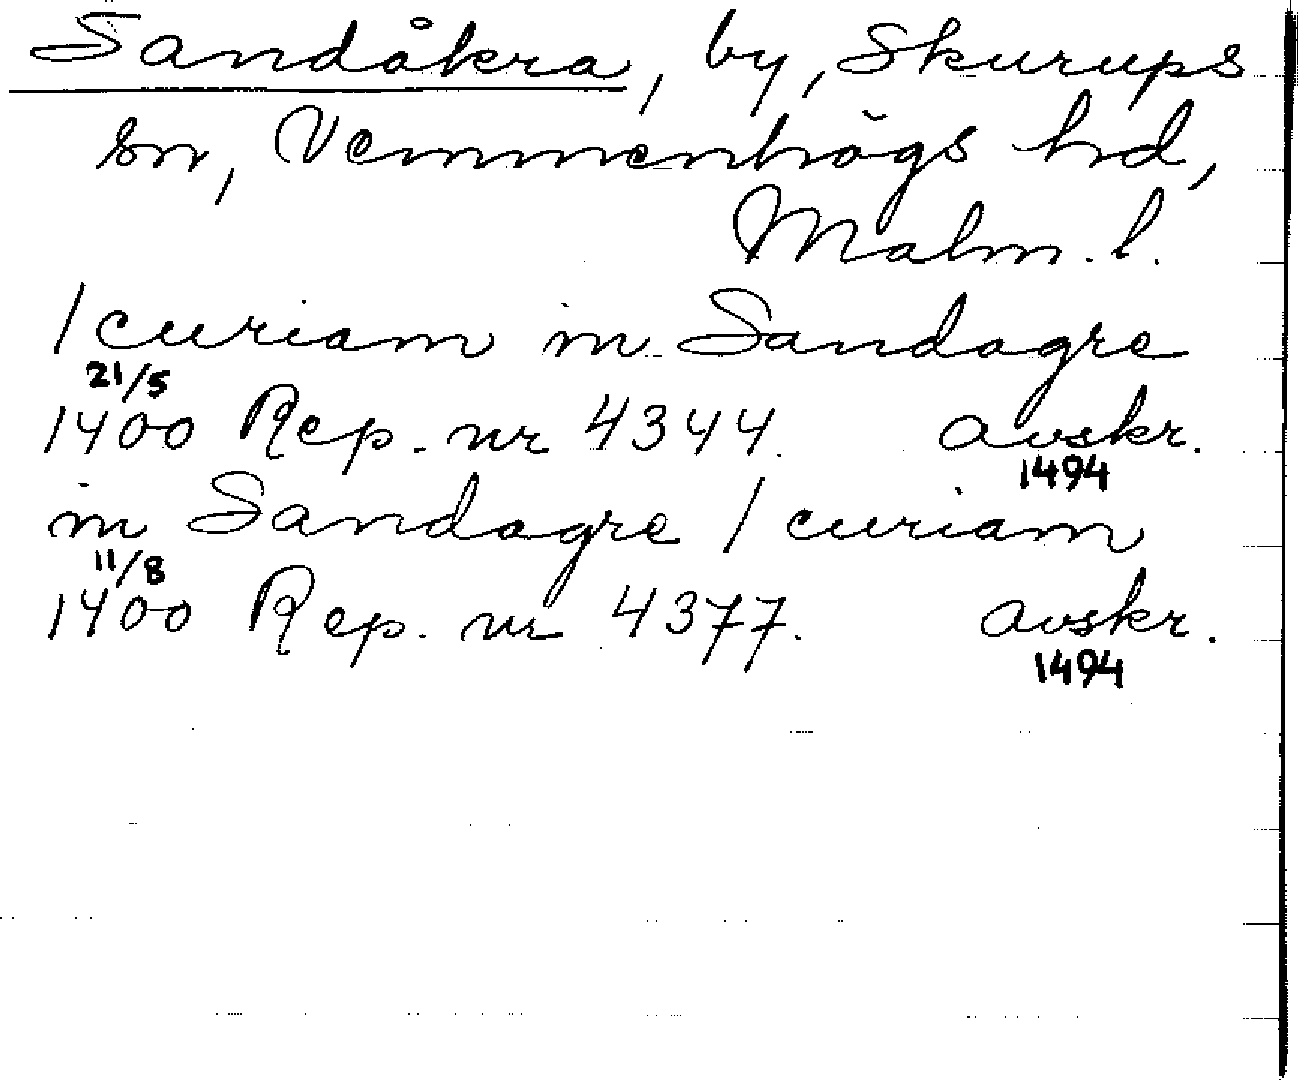 Sandåkra, by, Skurups
sn, Vemmenhögs hd,
Malm. l.
1 curiam in Sandagre
21/5
1400 Rep. nr 4344. avskr.
1494
in Sandagre 1 curiam
11/8
1400 Rep. nr 4377. avskr.
1494